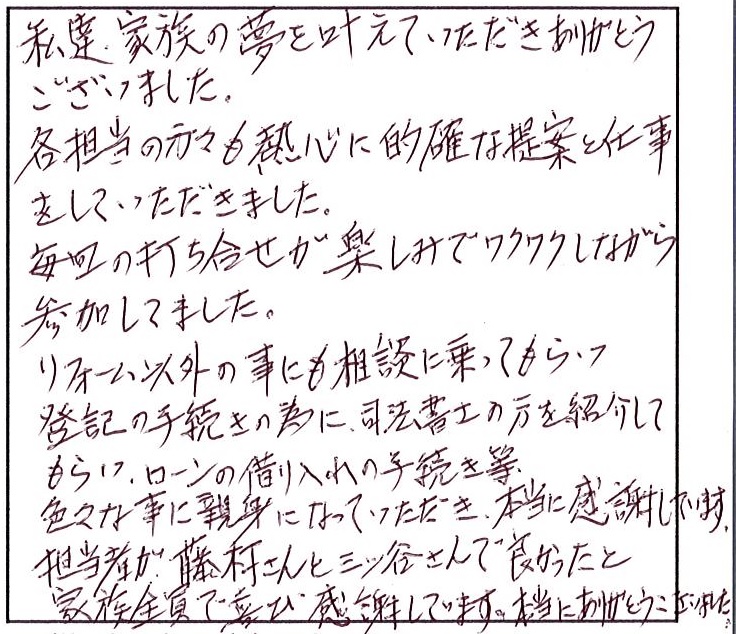 私達、家族の夢を叶えていただきありがとう
ございました。
各担当の方々も熱心に的確な提案と仕事
をしていただきました。
毎回の打ち合せが楽しみでワクワクしながら
参加してました。
リフォーム以外の事にも相談に乗ってもらい
登記の手続きの為に、司法書士の方を紹介して
もらい、ローンの借り入れの手続き等、
色々な事に親身になっていただき、本当に感謝しています。
担当者が、藤村さんと三ッ谷さんで良かったと
家族全員で喜び感謝しています。本当にありがとうございました。